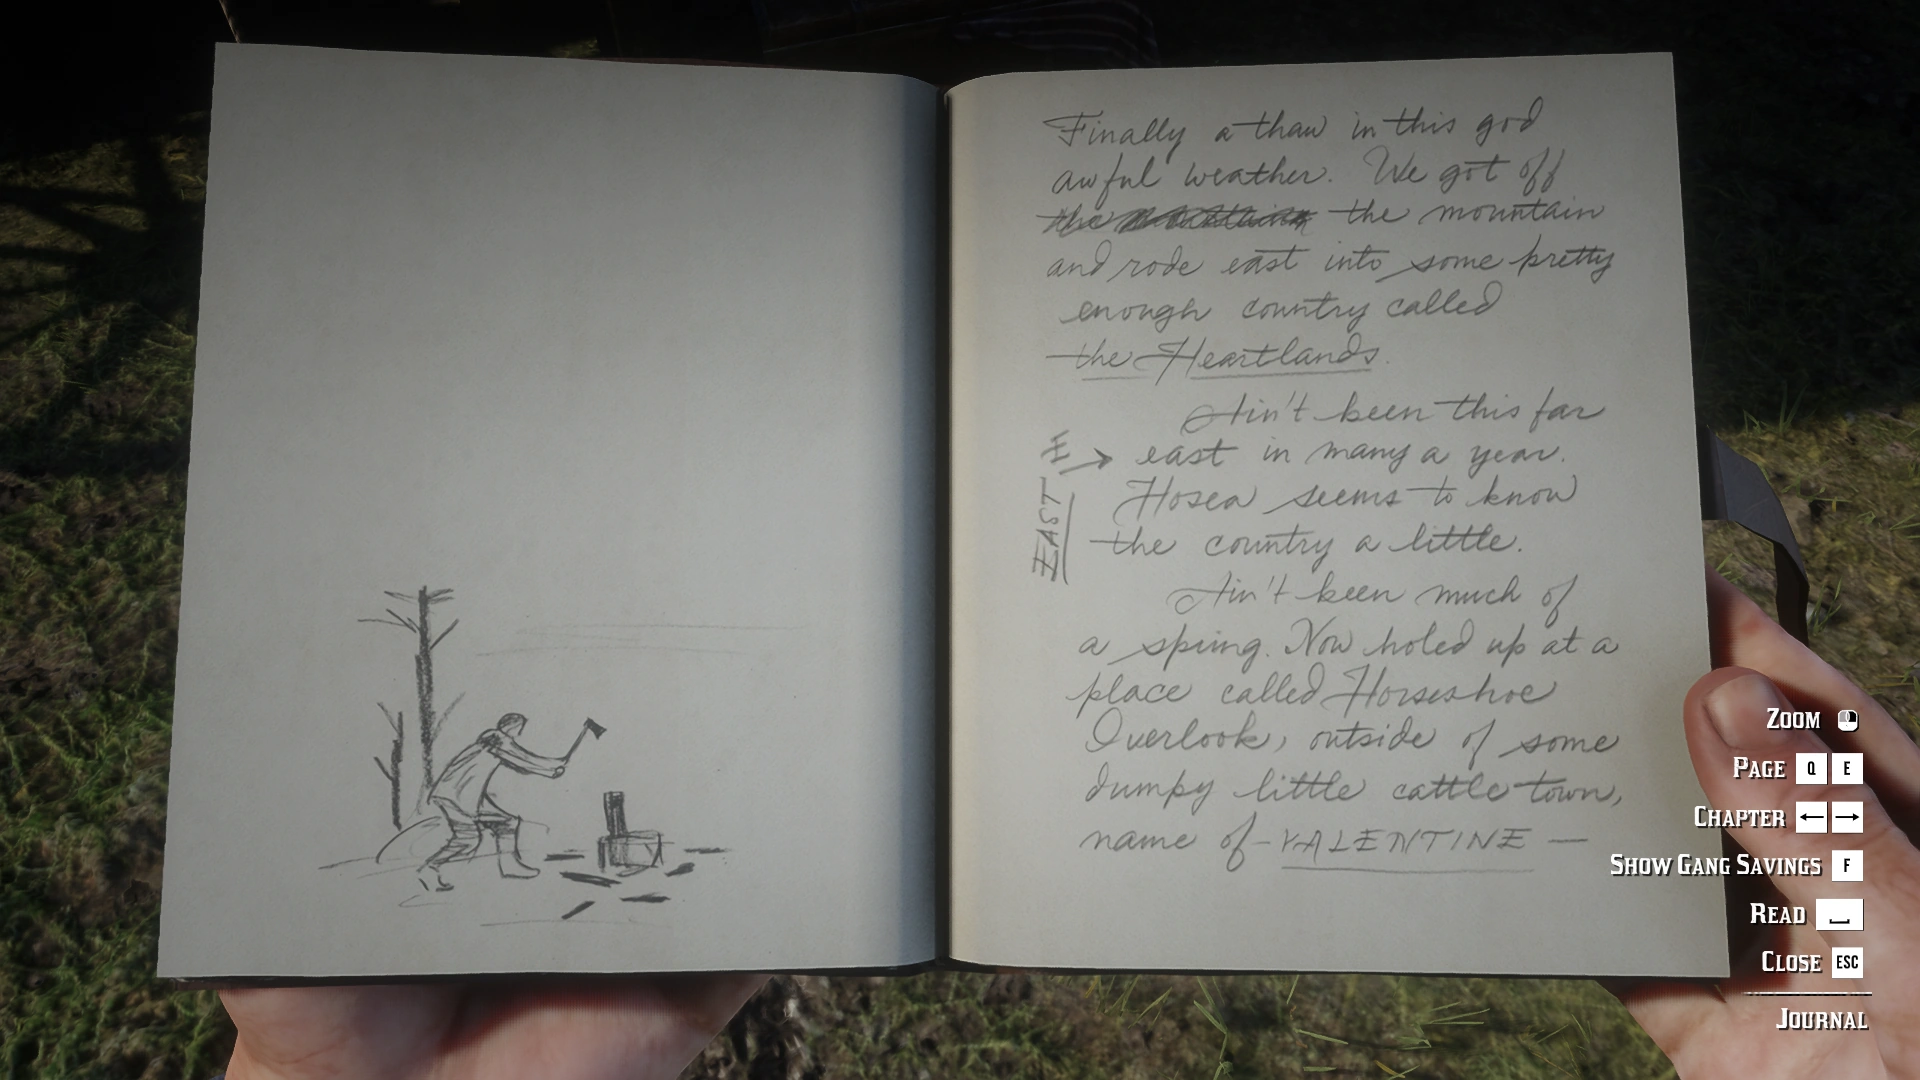 Finally a thaw in this god
awful weather. We got off
the mountain
and rode east into some pretty
enough country called
the Heartlands.
Ain't been this far
east in many a year.
Hosea seems to know
the country a little.
EAST
Ain't been much of
a spring. Now holed up at a
place called Horseshoe
Overlook, outside of some
dumpy little cattle town,
name of - VALENTINE —
ZOOM
PAGE Q E
CHAPTER ← →
SHOW GANG SAVINGS F
READ
CLOSE ESC
JOURNAL